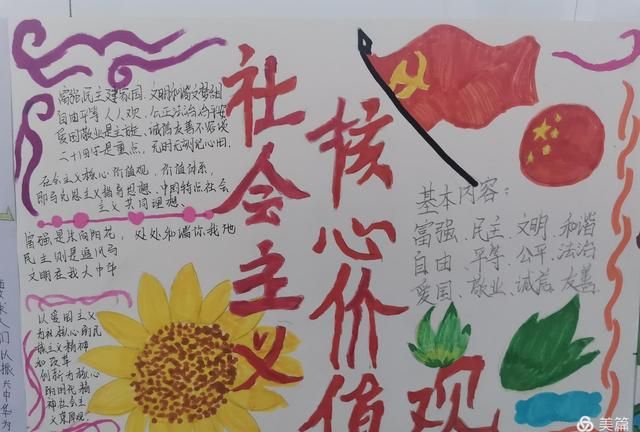 社会主义
核心价值观
富强民主建家园 文明和谐义梦组
自由平等人人欢 公正法治治平安
爱国敬业是主旋 诚信友善不容缓
二十四字是重点 充时无刻记心田
社会主义核心价值观 价值体系
即马克思主义指导思想、中国特点社会
主义共同理想、
富强是朵向阳花，处处和谐你我他
民主则是追风马
文明在我大中华
以爱国主义
为社核心的民
族主义精神
和改革
创新为核心
的时代精
神社会主
义荣辱观。
基本内容：
富强、民主 文明、和谐
自由、平等、公平、法治
爱国、敬业、诚信、友善
人们以振兴中华为
美篇